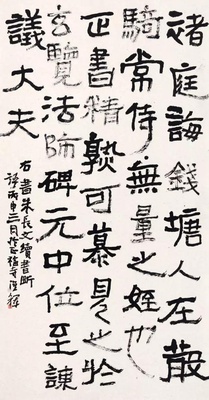 褚庭誨錢塘人左散
騎常侍無量之姪也
正書精熟可慕見之於
玄覽法師碑元中位至諫
議大夫
右書朱長文續書斷
丙申二月於